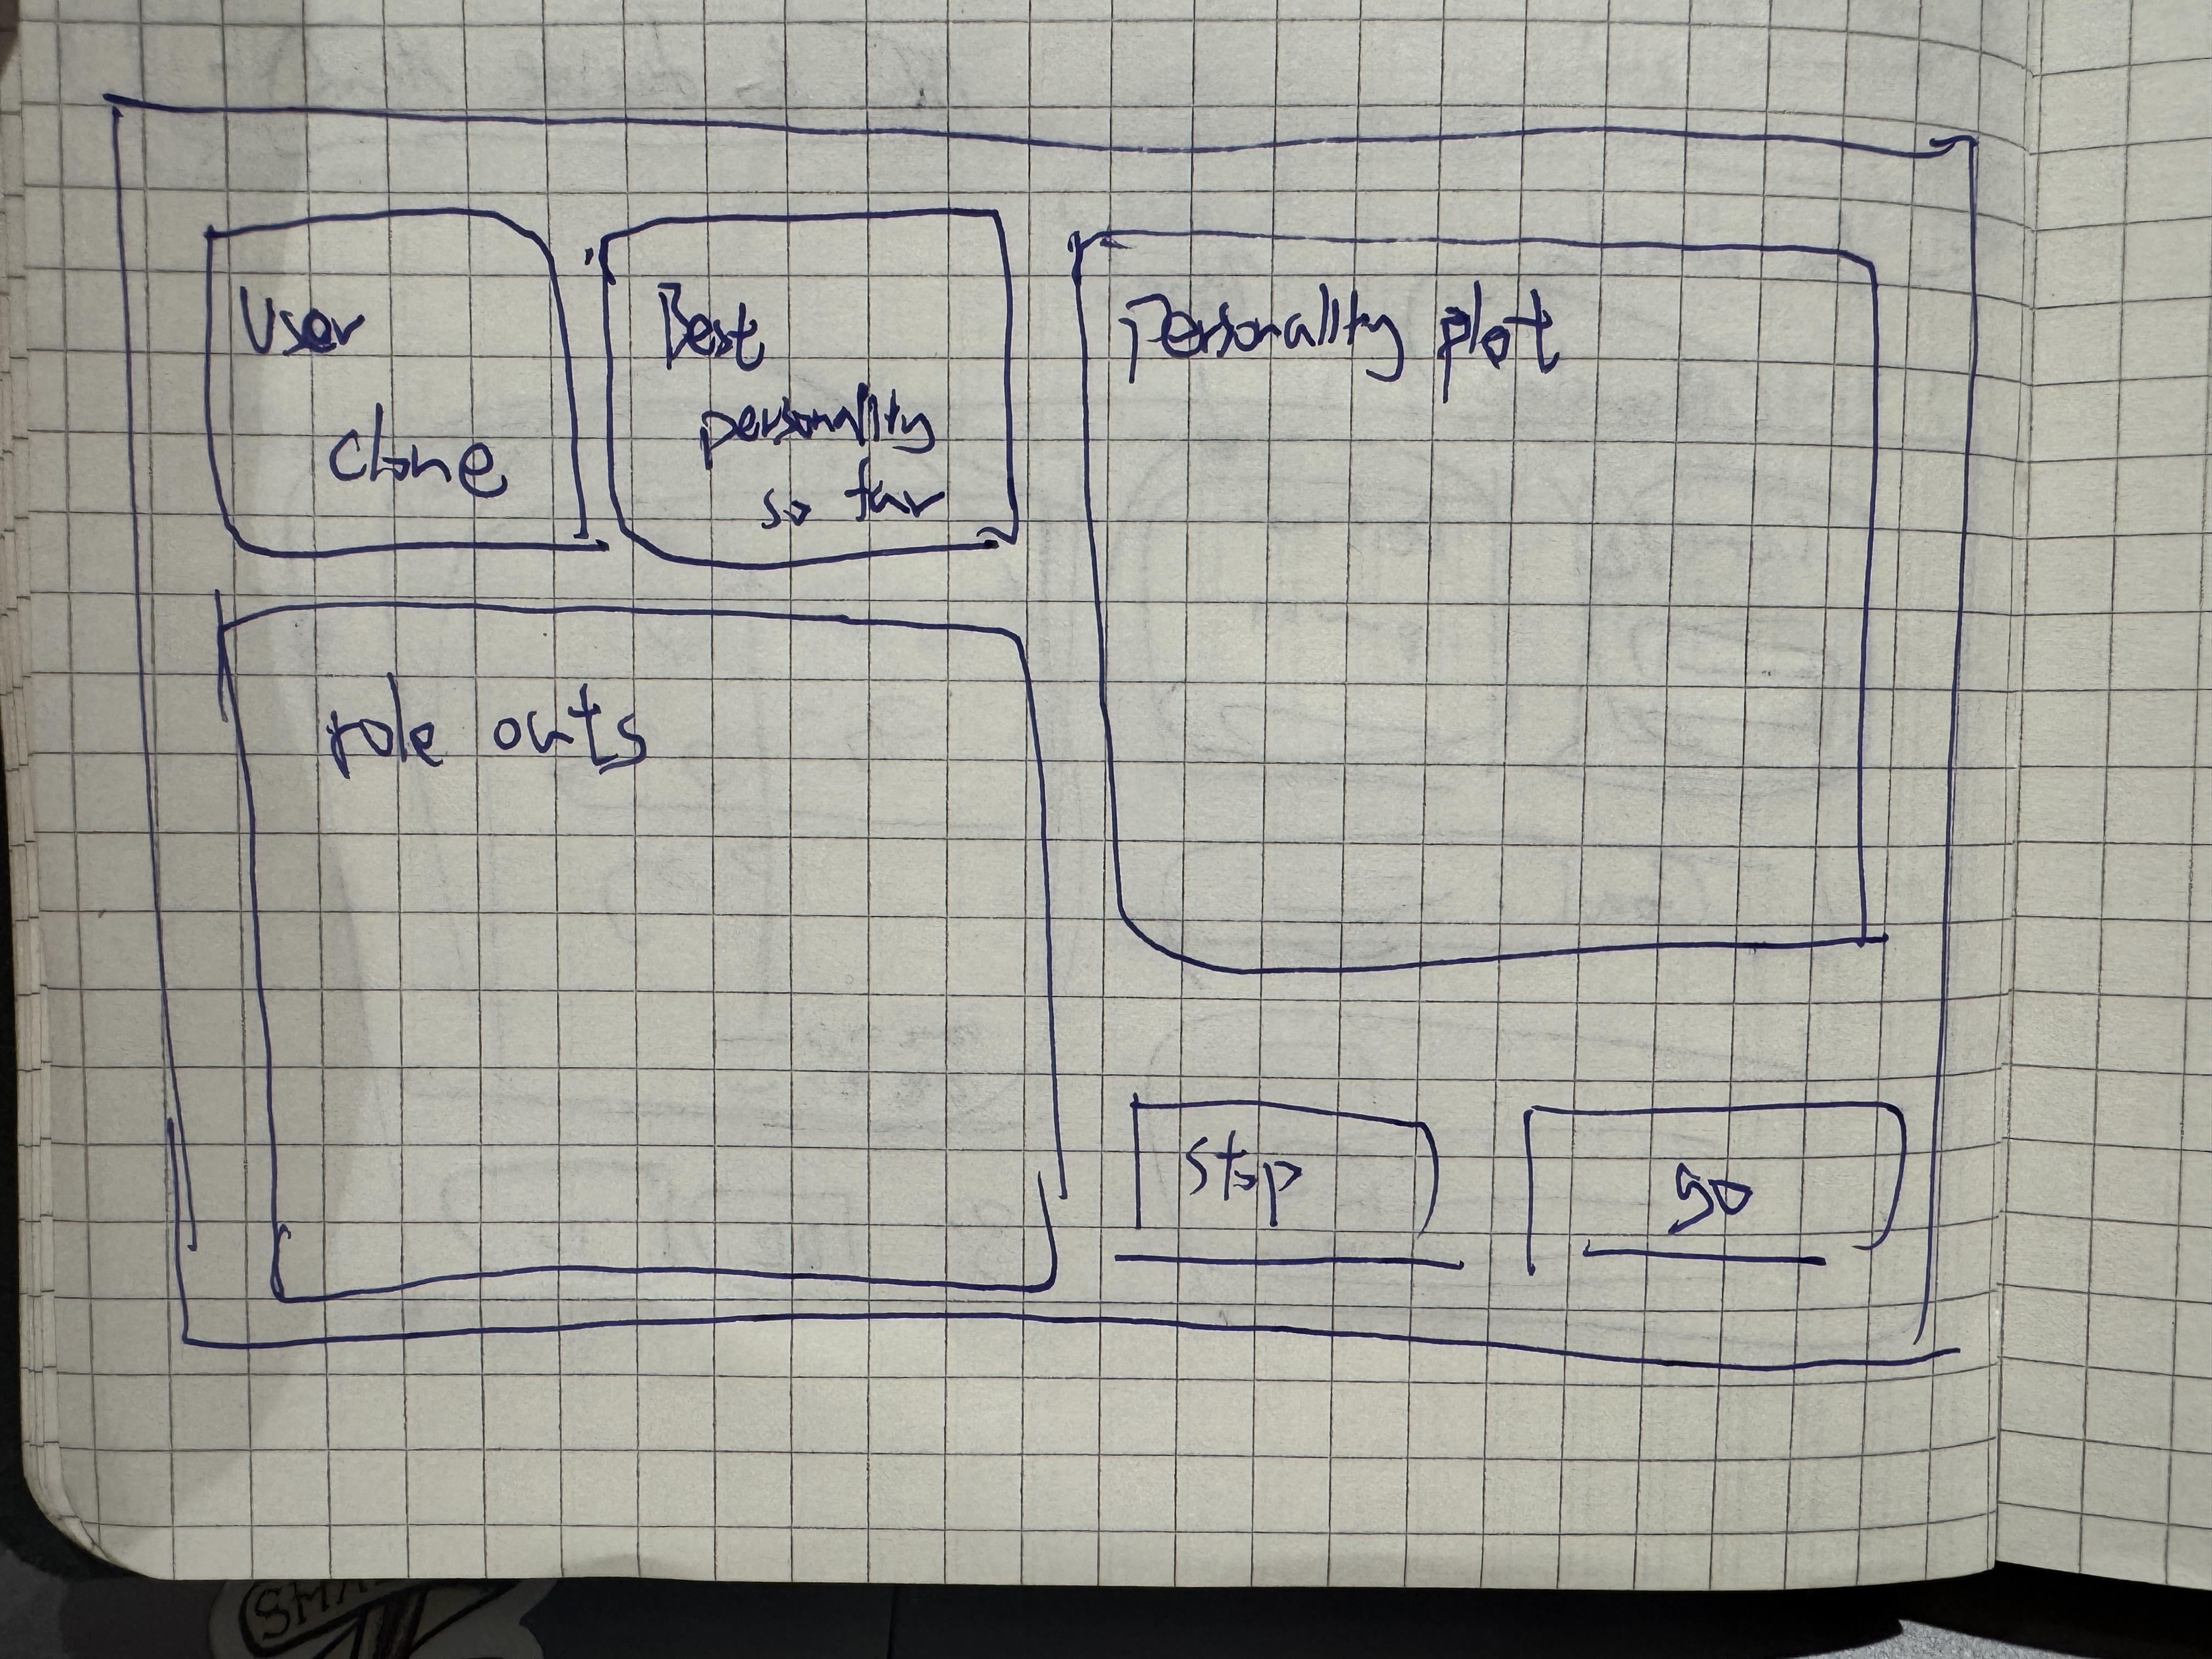 User
clone
Best
personality
so far
personality plot
role outs
stop
go